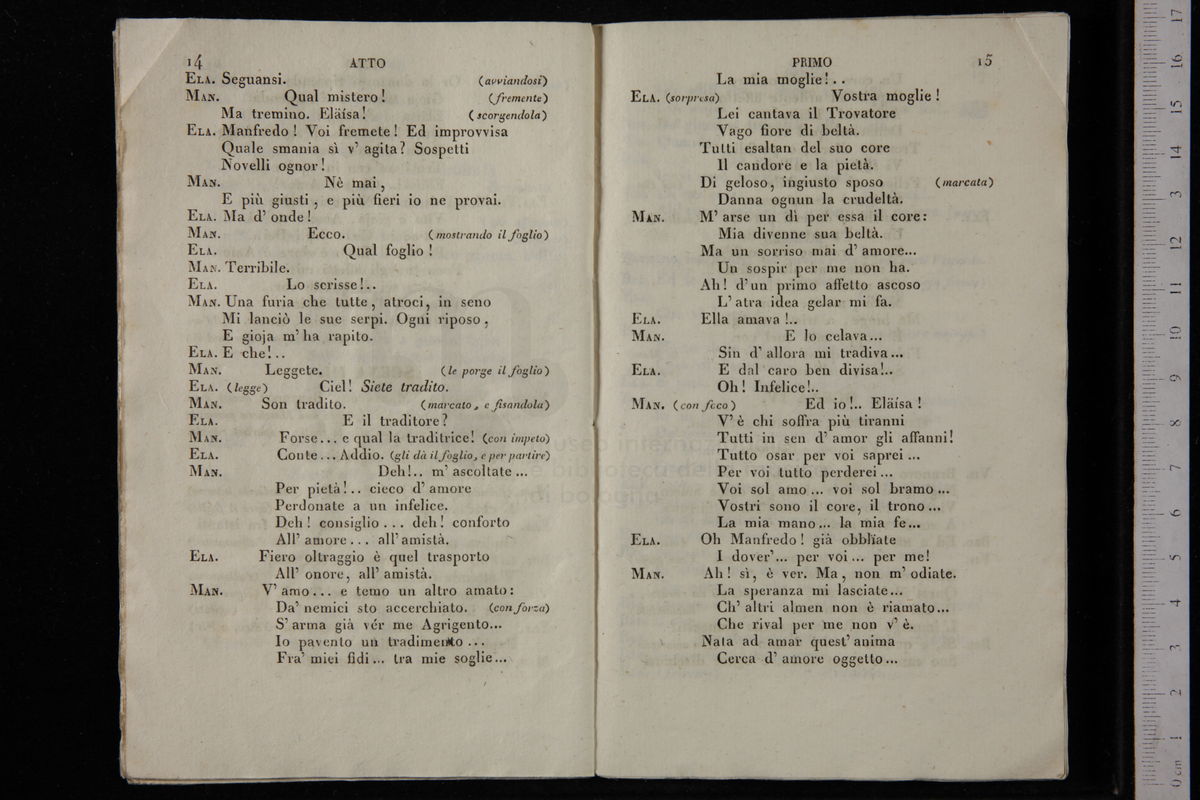 14 ATTO
ELA. Seguansi. (avviandosi)
MAN. Qual mistero! (fremente)
Ma tremino. Eläisa! (scorgendola)
ELA. Manfredo! Voi fremete! Ed improvvisa
Quale smania sì v' agita? Sospetti
Novelli ognor!
MAN. Nè mai,
E più giusti, e più fieri io ne provai.
ELA. Ma d' onde!
MAN. Ecco. (mostrando il foglio)
ELA. Qual foglio!
MAN. Terribile.
ELA. Lo scrisse!..
MAN. Una furia che tutte, atroci, in seno
Mi lanciò le sue serpi. Ogni riposo,
E gioja m' ha rapito.
ELA. E che!..
MAN. Leggete. (le porge il foglio)
ELA. (legge) Ciel! Siete tradito.
MAN. Son tradito. (marcato, e fisandola)
ELA. E il traditore?
MAN. Forse... e qual la traditrice! (con impeto)
ELA. Conte... Addio. (gli dà il foglio, e per partire)
MAN. Deh!.. m' ascoltate...
Per pietà!.. cieco d' amore
Perdonate a un infelice.
Deh! consiglio... deh! conforto
All' amore... all' amistà.
ELA. Fiero oltraggio è quel trasporto
All' onore, all' amistà.
MAN. V' amo... e temo un altro amato:
Da' nemici sto accerchiato. (con forza)
S' arma già vér me Agrigento...
Io pavento un tradimento...
Fra' miei fidi... tra mie soglie...
PRIMO 15
La mia moglie!..
ELA. (sorpresa) Vostra moglie!
Lei cantava il Trovatore
Vago fiore di beltà.
Tutti esaltan del suo core
Il candore e la pietà.
Di geloso, ingiusto sposo (marcata)
Danna ognun la crudeltà.
MAN. M' arse un dì per essa il core:
Mia divenne sua beltà.
Ma un sorriso mai d' amore...
Un sospir per me non ha.
Ah! d' un primo affetto ascoso
L' atra idea gelar mi fa.
ELA. Ella amava!..
MAN. E lo celava...
Sin d' allora mi tradiva...
ELA. E dal caro ben divisa!..
Oh! Infelice!..
MAN. (con fcco) Ed io!.. Eläisa!
V' è chi soffra più tiranni
Tutti in sen d' amor gli affanni!
Tutto osar per voi saprei...
Per voi tutto perderei...
Voi sol amo... voi sol bramo...
Vostri sono il core, il trono...
La mia mano... la mia fe...
ELA. Oh Manfredo! già obbliate
I dover'... per voi... per me!
MAN. Ah! sì, è ver. Ma, non m' odiate.
La speranza mi lasciate...
Ch' altri almen non è riamato...
Che rival per me non v' è.
Nata ad amar quest' anima
Cerca d' amore oggetto...